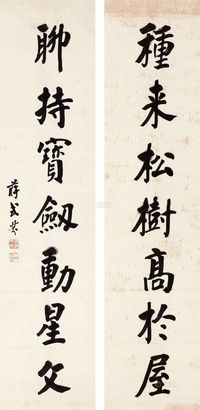 種来松樹髙於屋
聊持寶劔動星文
薛式芬